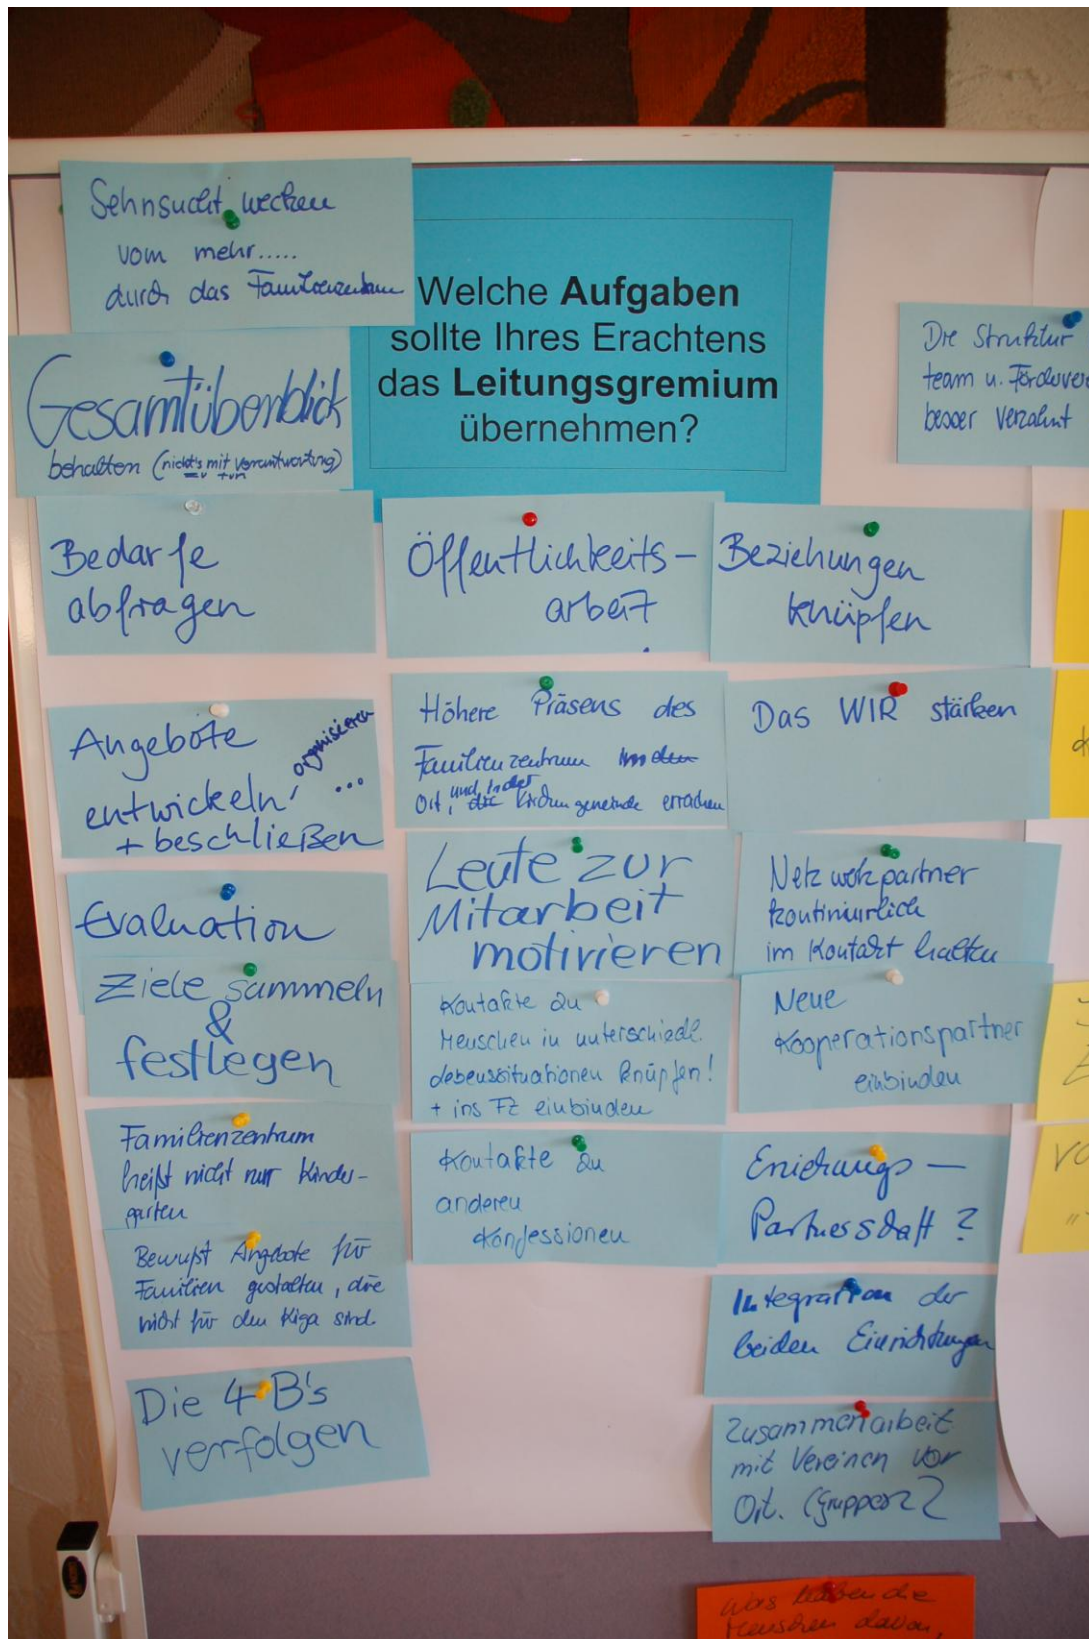 Sehnsucht wecken
vom mehr.....
durch das Familienzentrum
Welche Aufgaben
sollte Ihres Erachtens
das Leitungsgremium
übernehmen?
Gesamtüberblick
behalten (nicht's mit Verantwortung)
Die Struktur
team u. Förderver
besser Verzahnt
Bedarfe
abfragen
Öffentlichkeits-
arbeit
Beziehungen
knüpfen
Angebote
entwickeln, organisieren ...
+ beschließen
Höhere Präsens des
Familienzentrum
Ort, und in der Kirchengemeinde erreichen
Das WIR stärken
Evaluation
Leute zur
Mitarbeit
motivieren
Netzwerkpartner
kontinuierlich
im Kontakt halten
Ziele sammeln
&
festlegen
Kontakte zu
Menschen in unterschiedl.
Lebenssituationen knüpfen!
+ ins FZ einbinden
Neue
Kooperationspartner
einbinden
Familienzentrum
heißt nicht nur Kinder-
garten
Kontakte zu
anderen
Konfessionen
Erziehungs-
Partnerschaft?
Bewußt Angebote für
Familien gestalten, die
nicht für den Kiga sind.
Integration der
beiden Einrichtungen
Die 4 B's
verfolgen
Zusammenarbeit
mit Vereinen vor
Ort. (Gruppen?
Was haben die
Menschen davon,